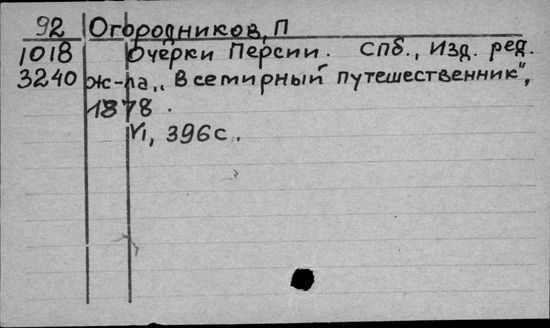 92 Огородников, П
1018 Очерки Персии. Спб., Изд. ред.
3240 ж-ла „Всемирный путешественник",
1878.
VI, 396с.